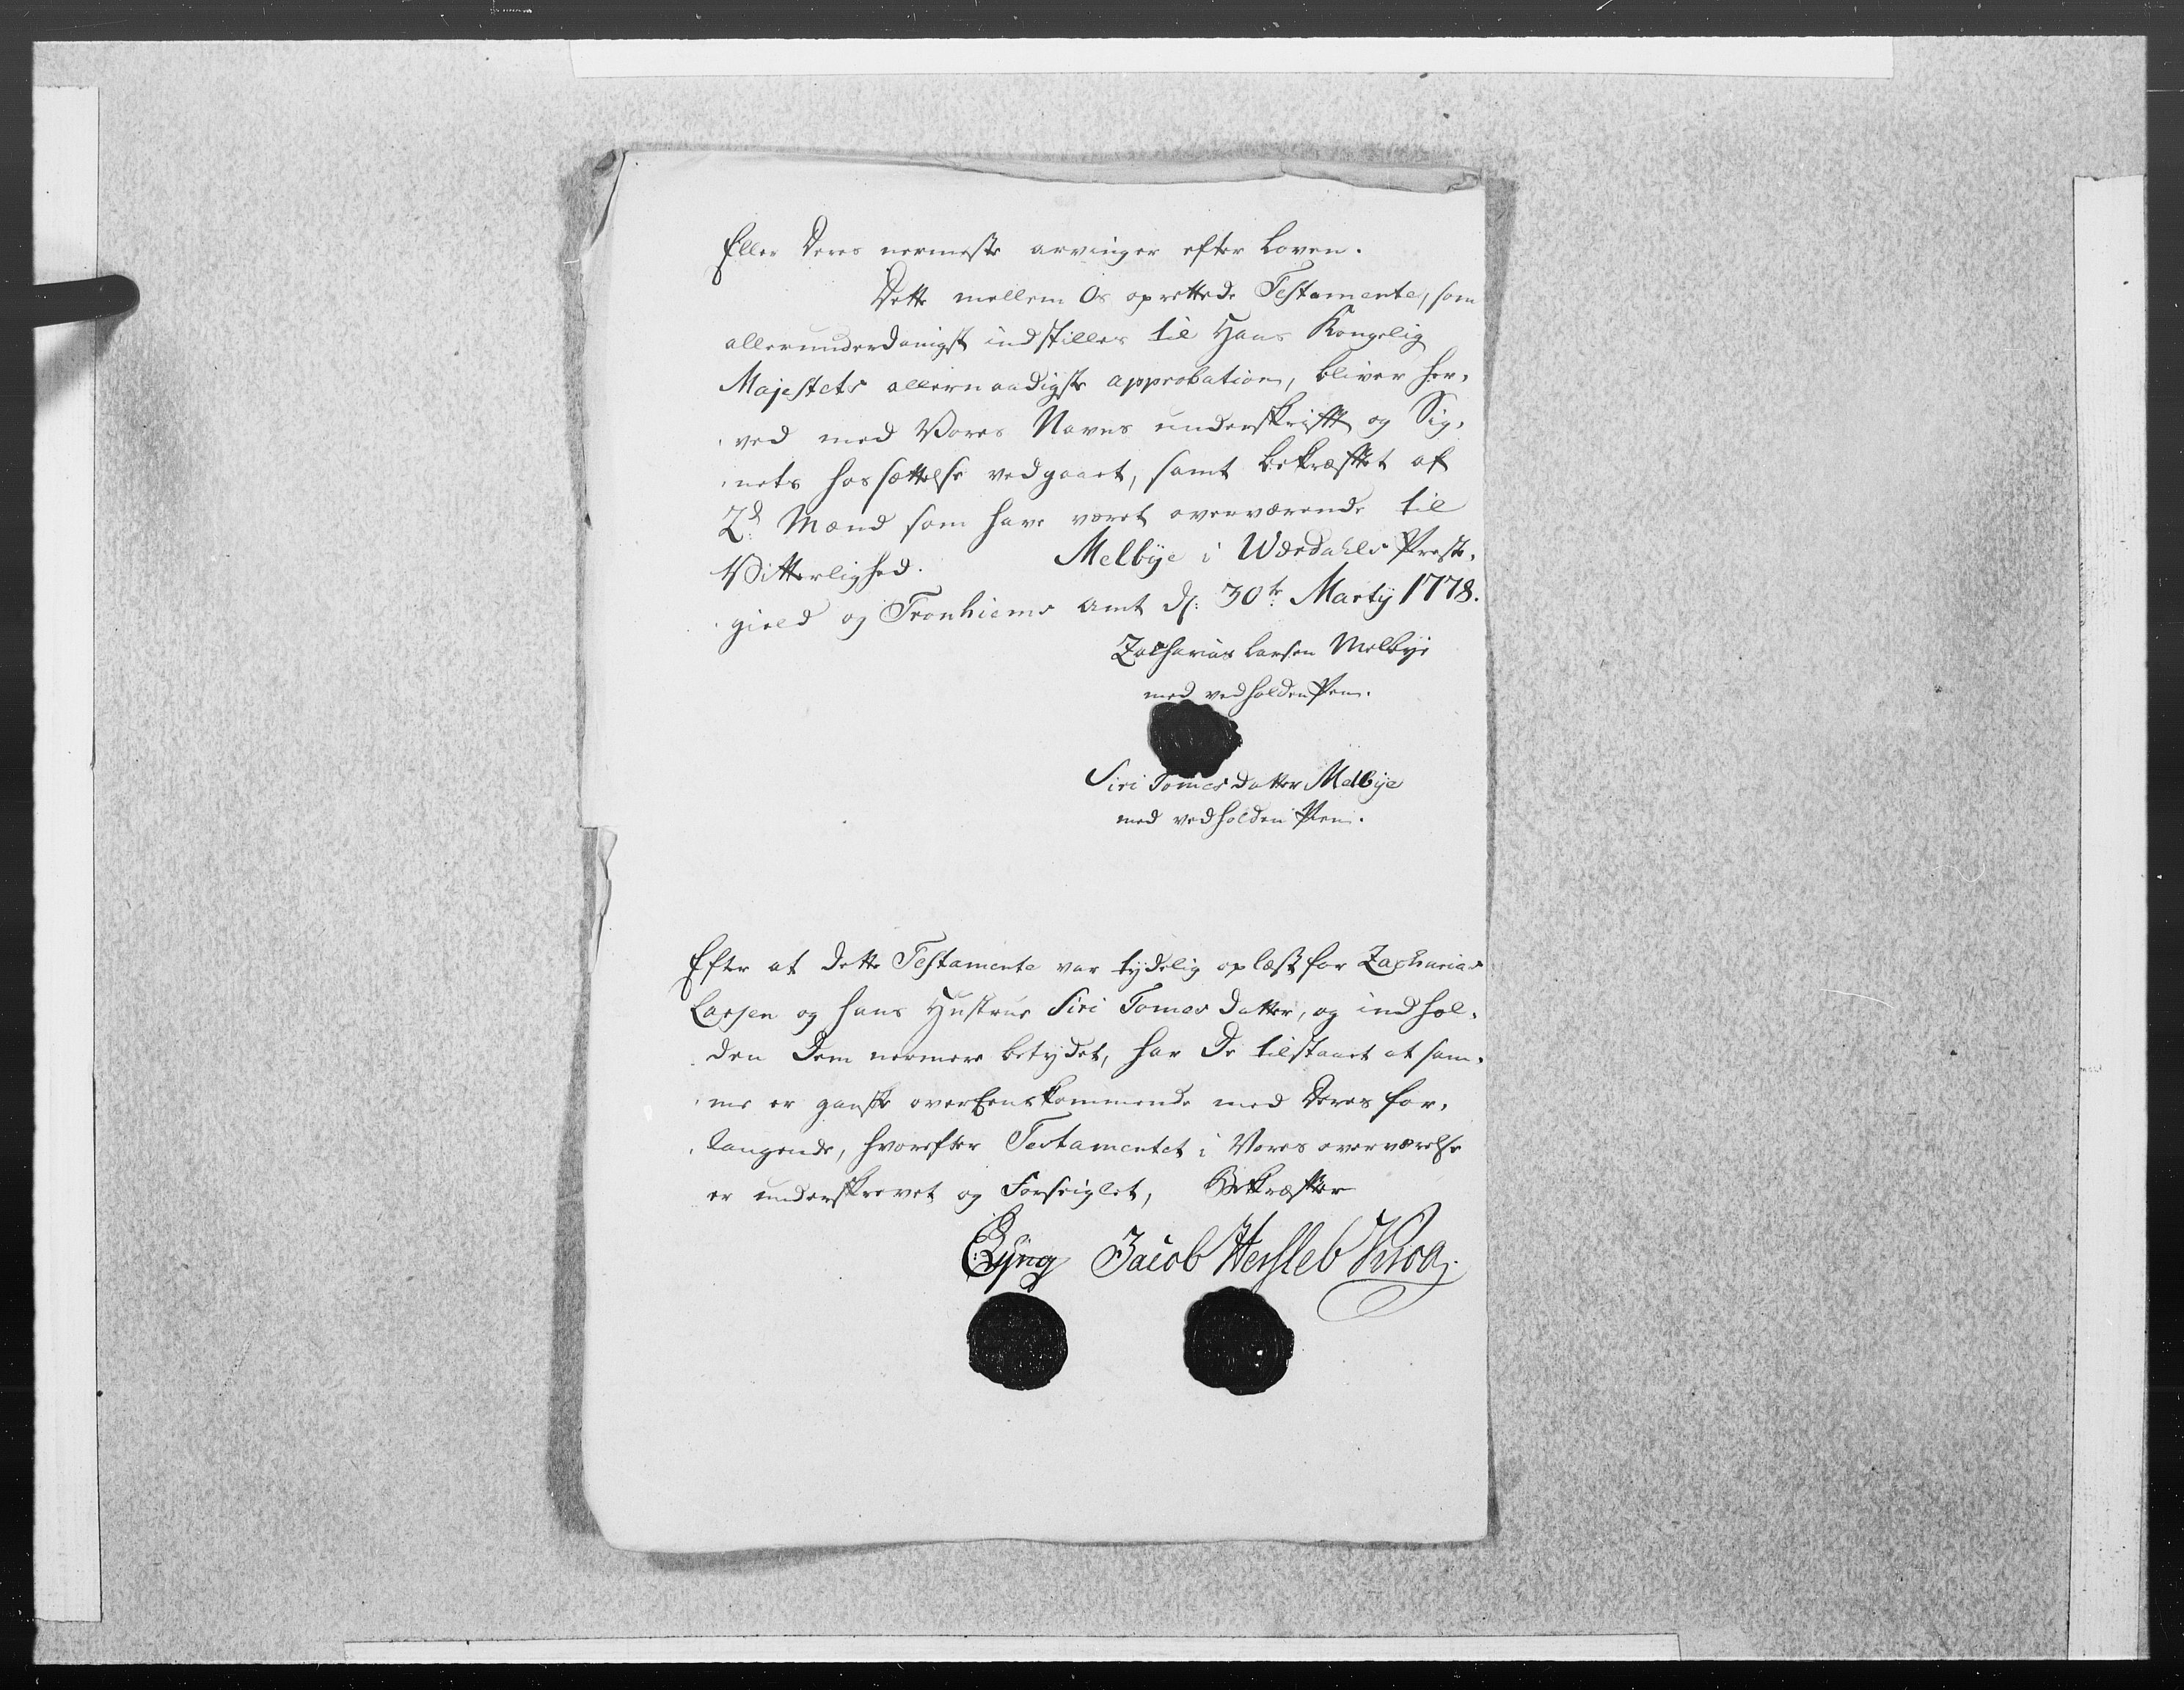 Eller deres nermeste arvinger efter Loven.
Dette mellem Os oprettede Testamente, som
allerunderdanigst indstilles til Hans Kongelig
Majestets allernaadigste approbation, bliver her-
ved med Vores Navns underskrifft og Sig-
nets hossættelse vedgaaet, samt bekræfftet af
2de Mænd som have været overværende til
Vitterlighed. Melbye i Wærdahls Preste-
gield og Tronhiems Amt d: 30te Martij 1778.
Zacharias Larsen Melbye
med vedholden Pen.
Siri Tomesdatter Melbye
med vedholden Pen.
Efter at dette Testamente var tydelig oplæst for Zacharias
Larsen og hans Hustrue Siri Tomesdatter, og indhol-
den Dem nermere betydet, har De tilstaaet at sam-
me er ganske overEenskommende med Deres for-
langende, hvorefter Testamentet i Vores overværelse
er underskrevet og Forseiglet, Bekræfter
Lyng Jacob Hersleb Krog.